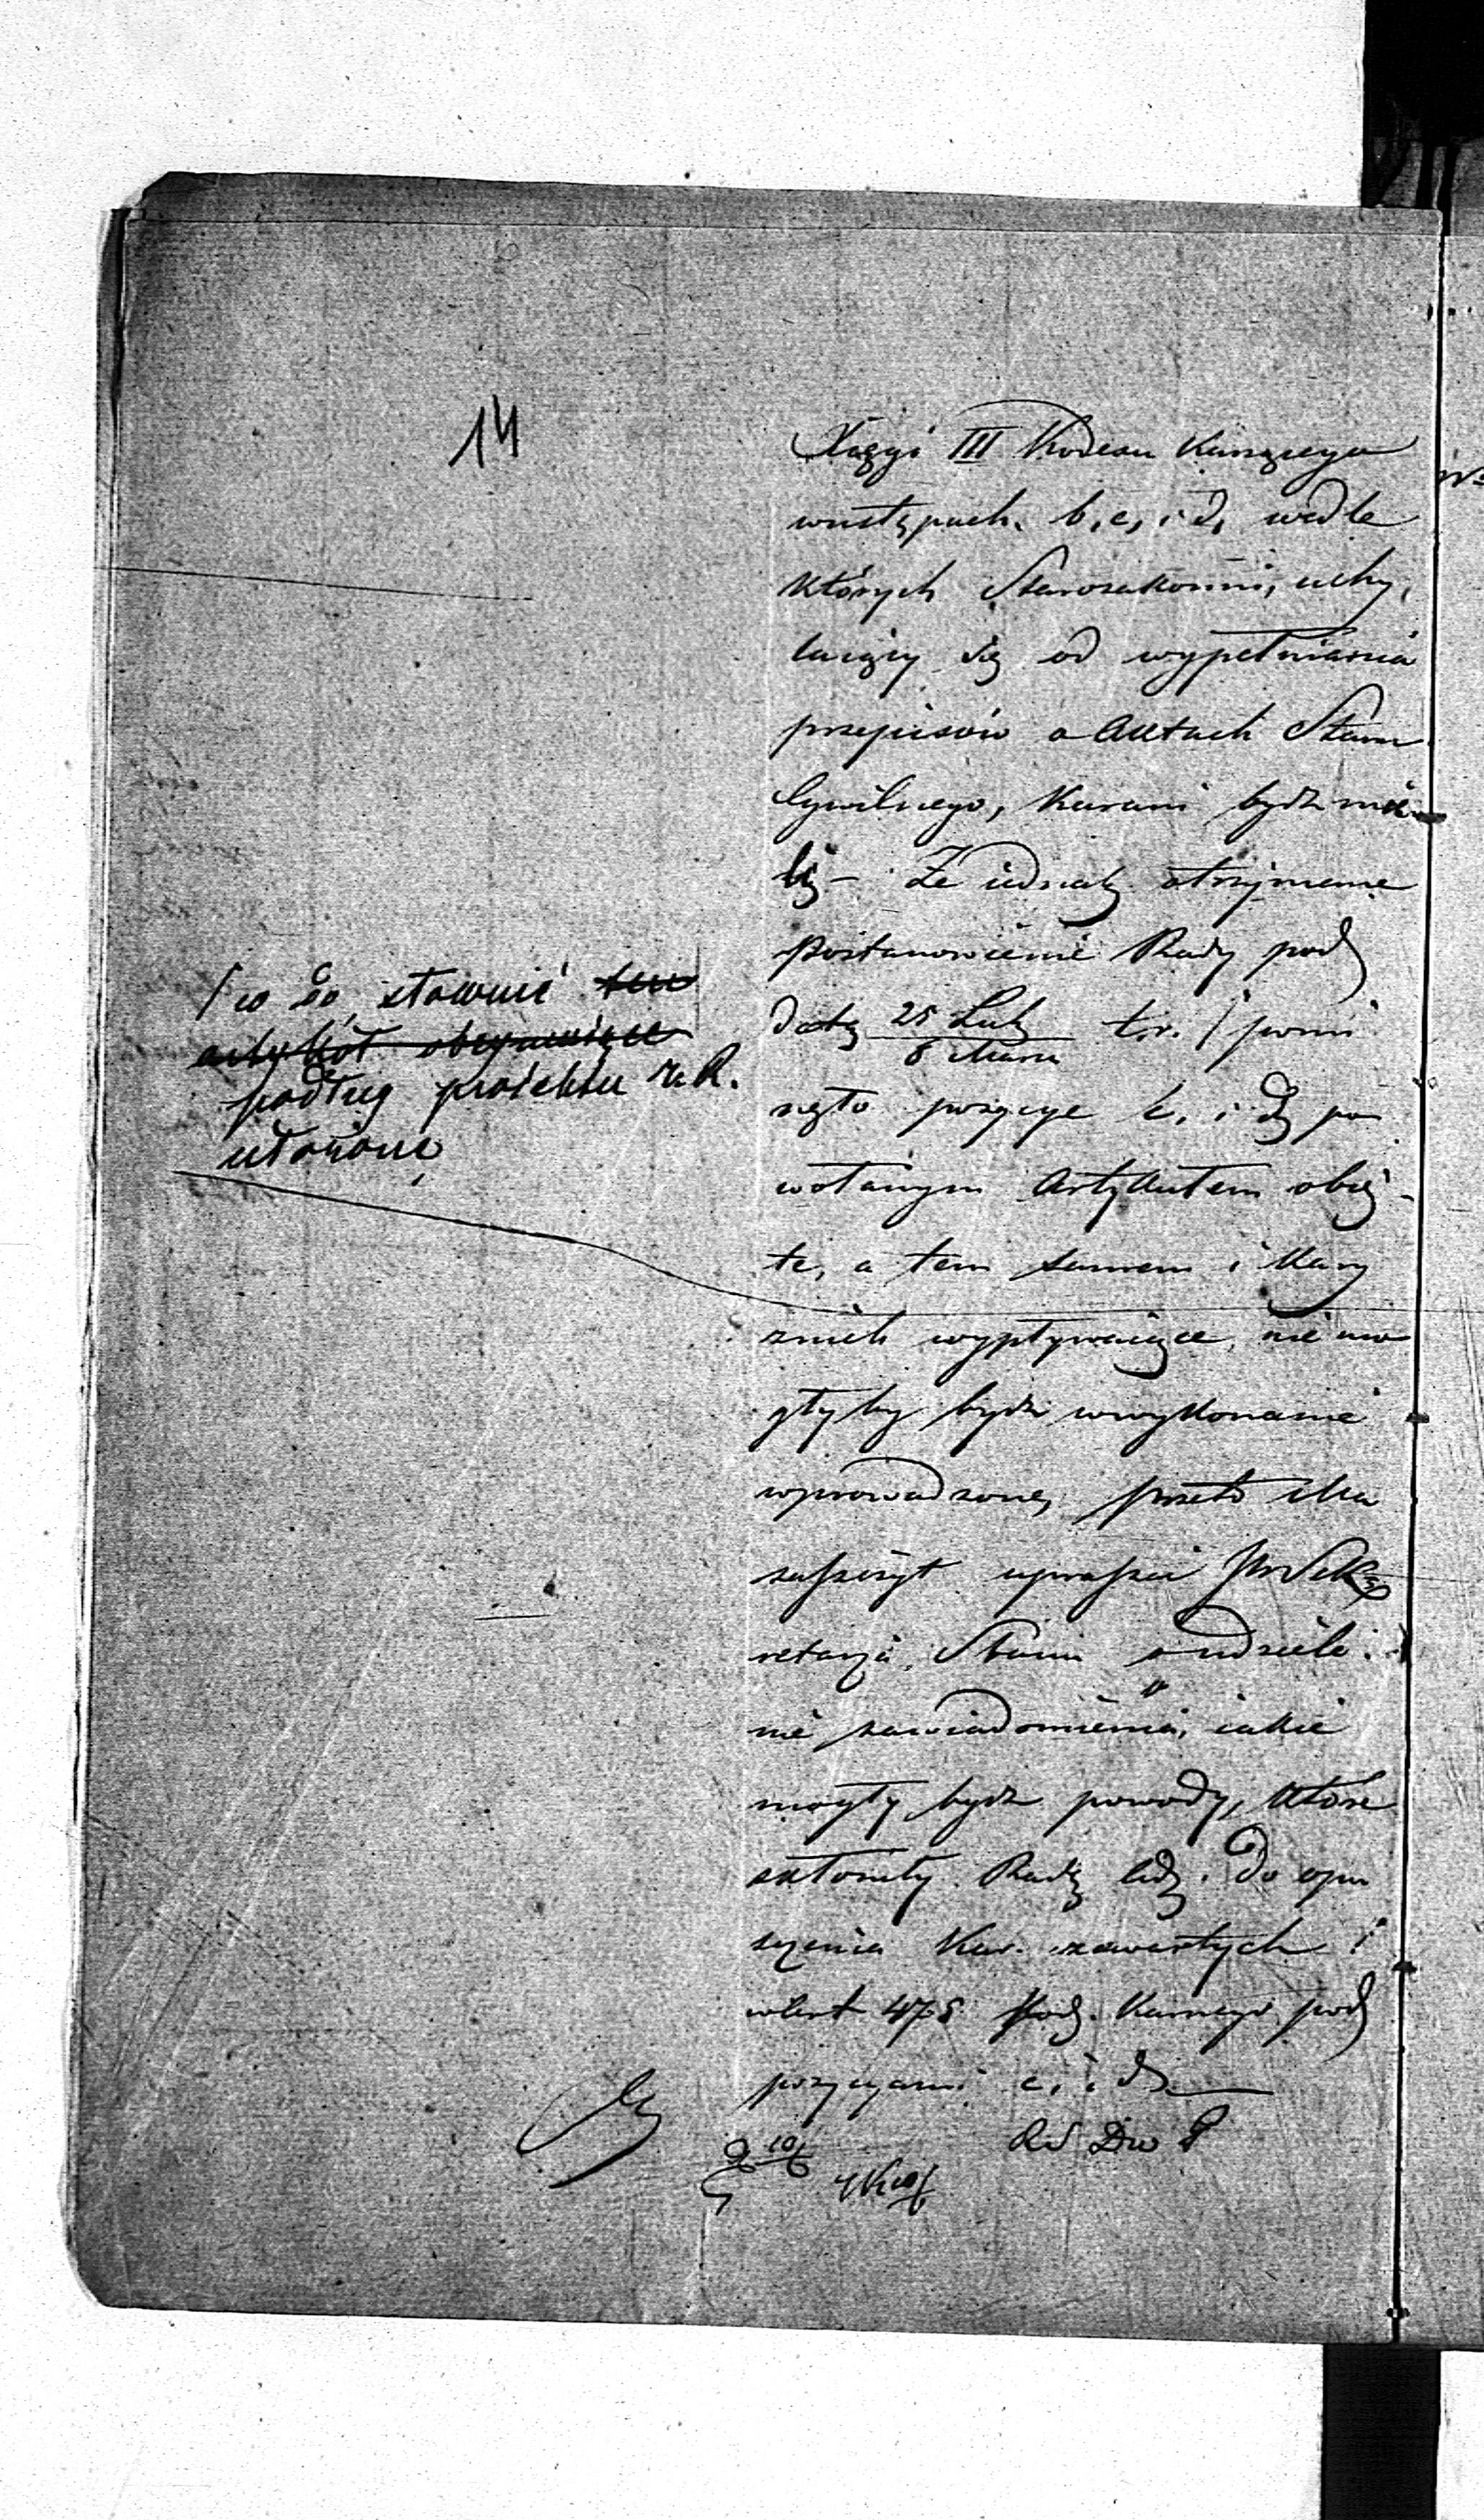 14
Xięgi III Kodexu Karzącego
wustępach b, c, i d, wedle
których Starozakonni, uchy,
laiący się od wypełniania
przepisów o Aktach Stanu
Cywilnego, karani bydź mie
li – Że iednak otrzymane
Postanowienie Rady pod
datą 25 Lut / 8 Marca t.r. / pomi
nęło pozycye c, i d, po
wołanym Artykułem obię-
te, a tem samem i kary
znich wypływaiące, nie mo
głyby bydź wwykonanie
wprowadzone, przeto ma
zaszczyt upraszać JW Sek
retarza Stanu o udziele
nie zawiadomienia, iakie
mogły bydź powody, które
skłoniły Radę Adm. do opu
szczenia kar zawartych
wArt 475 Kod. Karnego pod
pozycyami c, i d.
/ co do, stownie
artykół obeymuiące
podług proiektu
ułożone